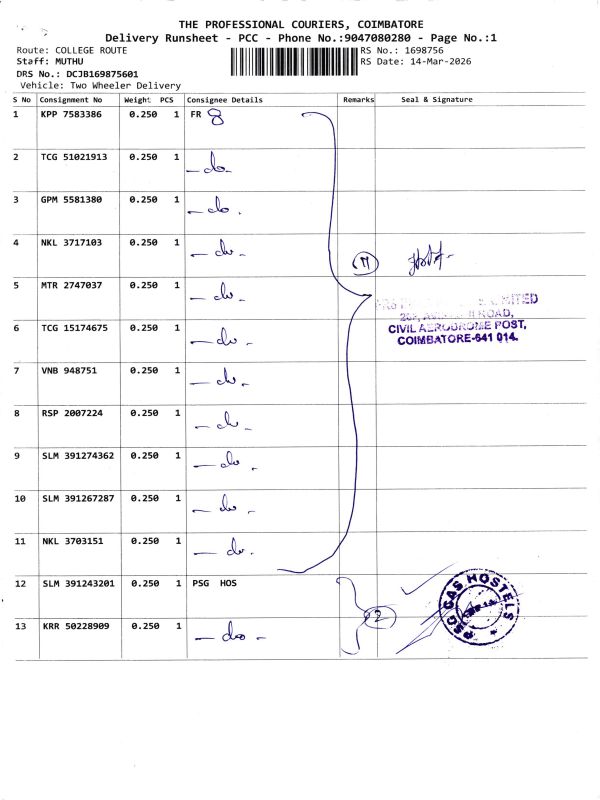 THE PROFESSIONAL COURIERS, COIMBATORE
Delivery Runsheet - PCC - Phone No.:9047080280 - Page No.:1
Route: COLLEGE ROUTE
RS No.: 1698756
Staff: MUTHU
RS Date: 14-Mar-2026
DRS No.: DCJB169875601
Vehicle: Two Wheeler Delivery
S No Consignment No Weight PCS Consignee Details Remarks Seal & Signature
1 KPP 7583386 0.250 1 FR 8
2 TCG 51021913 0.250 1 - do -
3 GPM 5581380 0.250 1 - do .
4 NKL 3717103 0.250 1 - do -
11
5 MTR 2747037 0.250 1 - do -
LIMITED
ROAD,
CIVIL AERODROME POST,
COIMBATORE-641 014.
6 TCG 15174675 0.250 1 - do -
7 VNB 948751 0.250 1 - do -
8 RSP 2007224 0.250 1 - do -
9 SLM 391274362 0.250 1 - do -
10 SLM 391267287 0.250 1 - do -
11 NKL 3703151 0.250 1 - do -
12 SLM 391243201 0.250 1 PSG HOS
2
PSG CAS HOSTELS
13 KRR 50228909 0.250 1 - do -